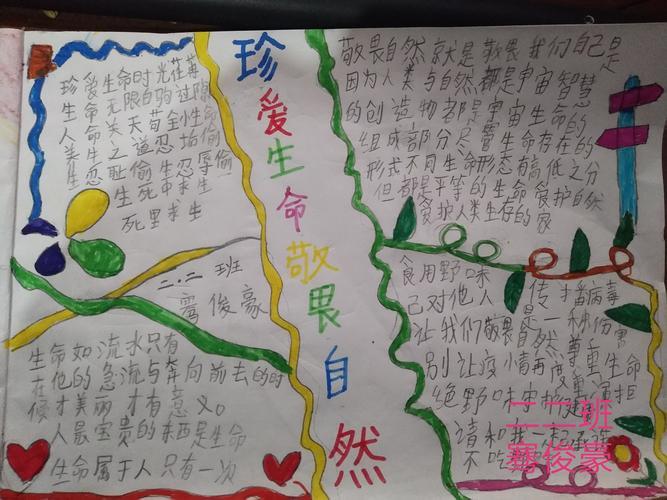 珍爱生命敬畏自然
珍爱生命时光荏苒
生命无限白驹过隙
人命关天苟全性命
类生之耻道忍拍偷
生忍偷偷忍辱偷
生死中求生
死里求生
二.二班
骞俊豪
生命如流水只有
在他的急流与奔向前去的时
候才美丽才有意义。
人最宝贵的东西是生命
生命属于人只有一次
敬畏自然就是敬畏我们自己是
因为人类与自然都是宇宙智慧
的创造物都是宇宙生命的
组成部分尽管生命存在的
形式不同生命形态有高低之分
但都是平等的生命爱护自然
爱护人类生存的家
食用野味传播病毒
己对他人是一种伤害
让我们敬畏自然尊重生命
别让疫情再度重演拒
绝野味守护
请和我一起承诺
不吃
二二班
骞俊豪